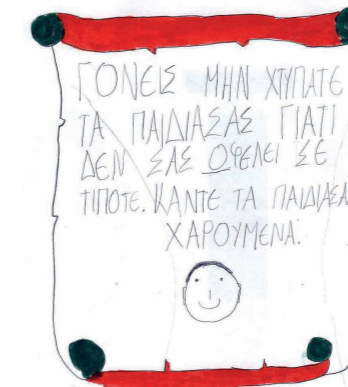 ΓΟΝΕΙΣ ΜΗΝ ΧΤΥΠΑΤΕ
ΤΑ ΠΑΙΔΙΑΣΑΣ ΓΙΑΤΙ
ΔΕΝ ΣΑΣ ΟΦΕΛΕΙ ΣΕ
ΤΙΠΟΤΕ. ΚΑΝΤΕ ΤΑ ΠΑΙΔΙΑΣΑ
ΧΑΡΟΥΜΕΝΑ.